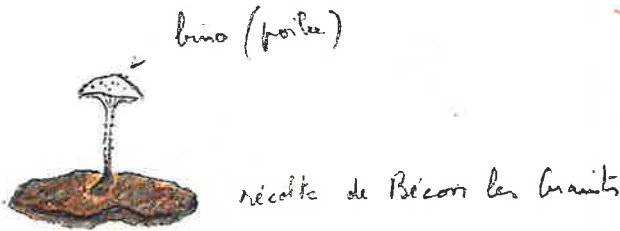 bino (poilee)
récolte de Bécon les Granits